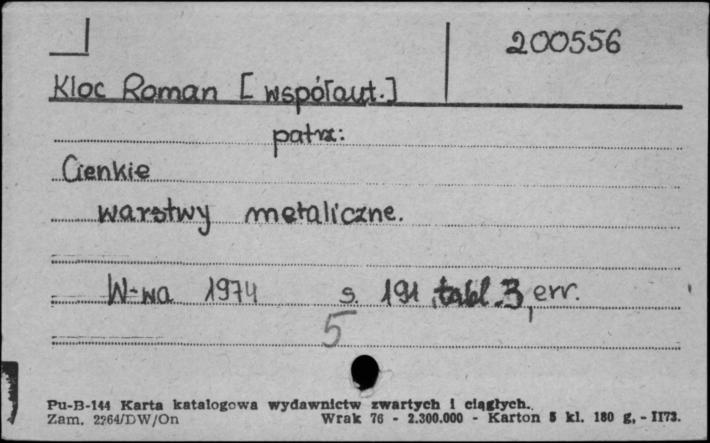 200556
Kloc Roman [współaut.]
patrz:
Cienkie
warstwy metaliczne.
W-wa 1974 s. 191, tabl. 3, err.
5
Pu-B-144 Karta katalogowa wydawnictw zwartych i ciągłych.
Zam. 2264/DW/On Wrak 76 - 2.300.000 - Karton 5 kl. 180 g. - II73.